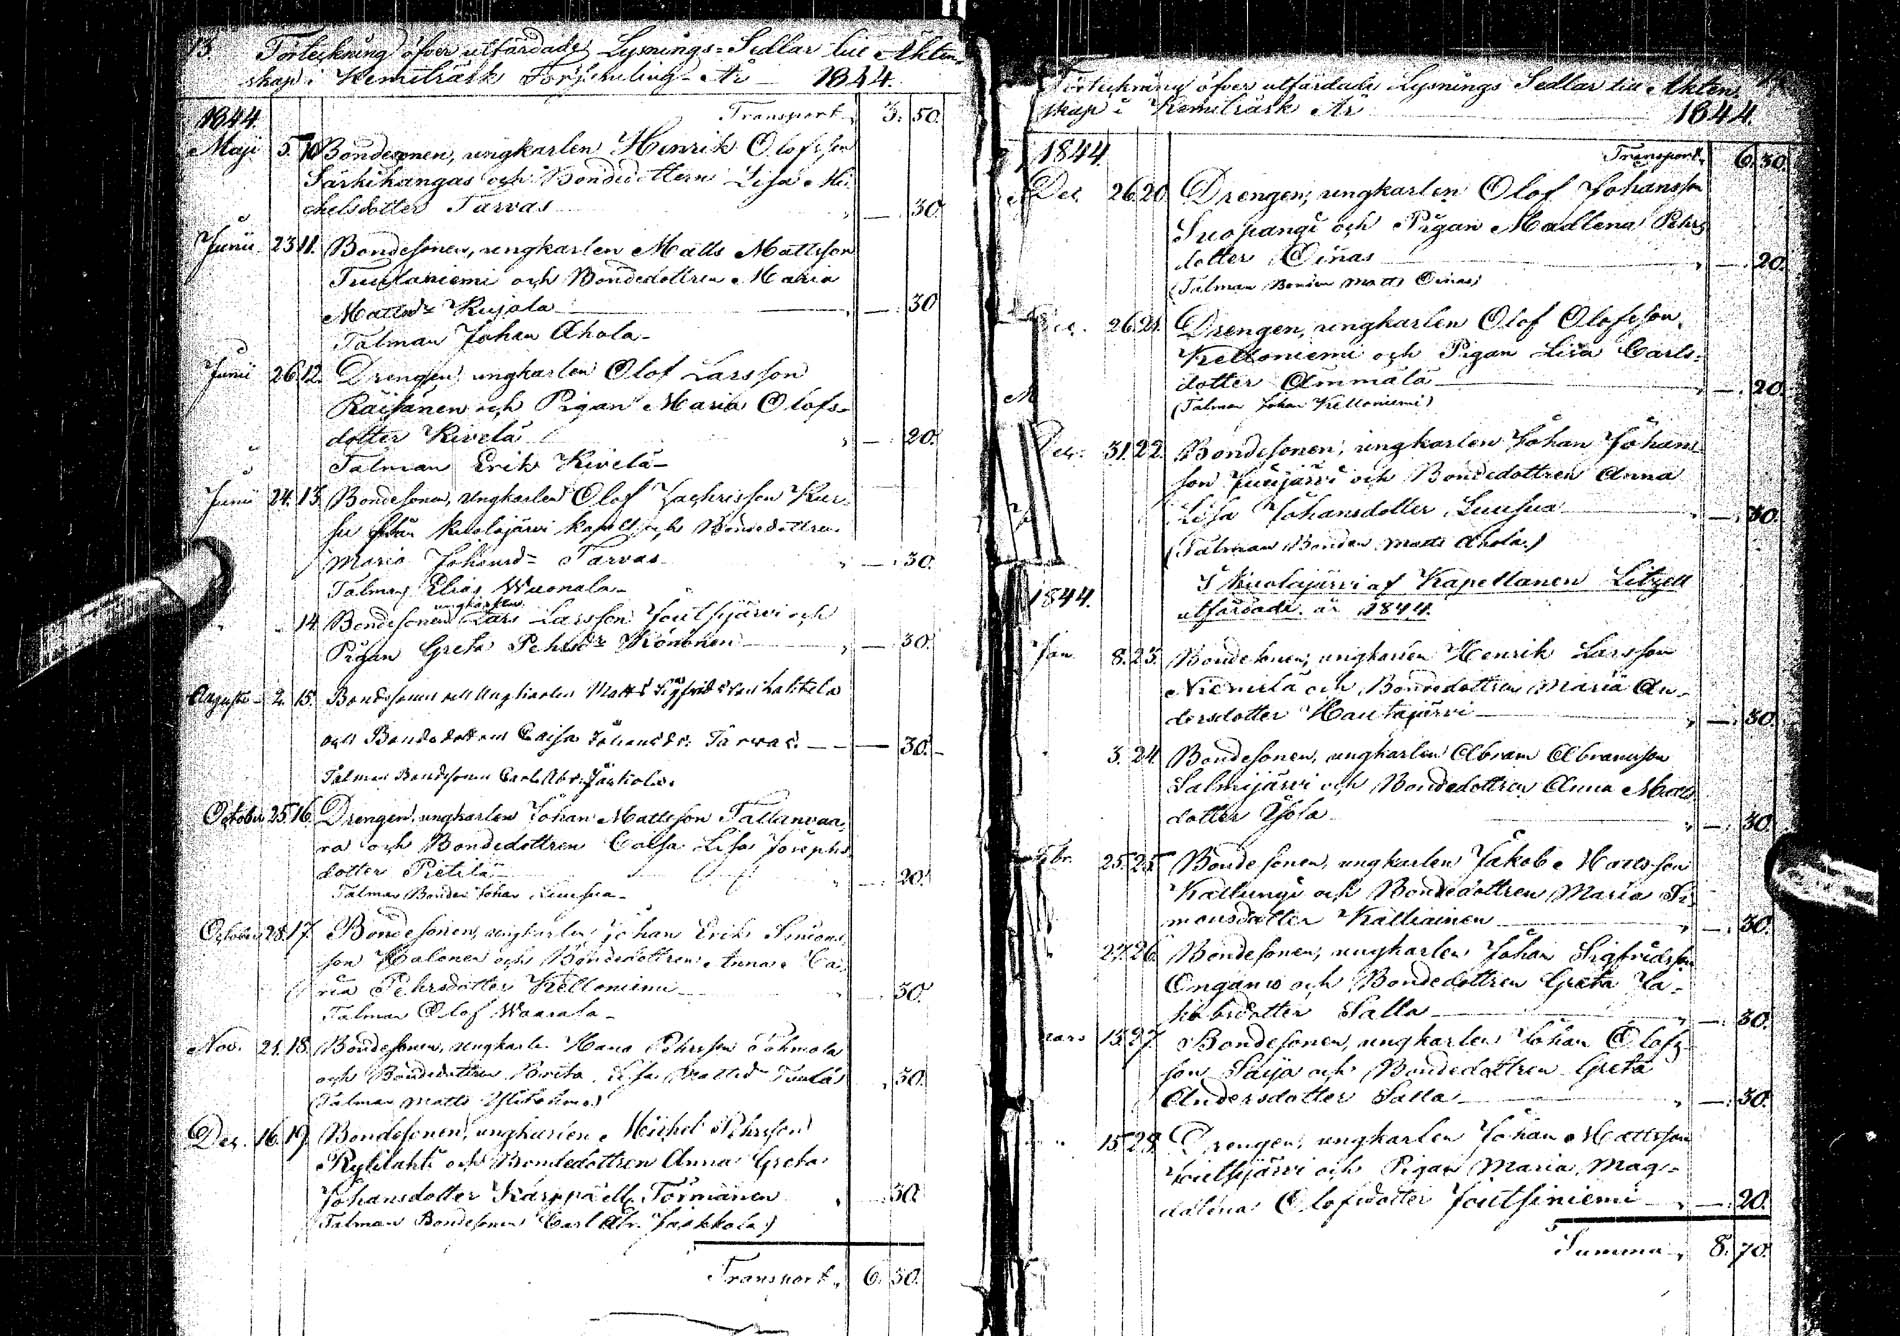 13. Förteckning öfver utfärdade Lysnings=Sedlar till Äkten-
skap i Kemiträsk Församling År 1844.
1844. Transport 3. 50.
Maji 5. 10 Bondesonen, ungkarlen Henrik Olofsson
Särkikangas och Bondedottern Lisa Mi-
chelsdotter Tarvas — 30.
Junii 23 11. Bondesonen, ungkarlen Matts Mattsson
Tuulaniemi och Bondedottren Maria
Mattsdr Kujala — 30
Talman Johan Ahola
Junii 26. 12. Drengen, ungkarlen Olof Larsson
Räisänen och Pigan Maria Olofs-
dotter Kivelä — 20.
Talman Erik Kivelä
Junii 24. 13. Bondesonen, Ungkarlen Olof Zachrisson Kur-
su från Kuolajärvi Kapell och Bondedottren
Maria Johansd= Tarvas — 30.
Talman Elias Wuonala
" " 14. Bondesonen ungkarlen Lars Larsson Joutsijärvi och
Pigan Greta Pehrsdr Könönen — 30.
Augusti 2. 15. Bondesonen Ungkarlen Matts Sigfridsson
och Bondedottren Caisa Johansdr. Tarvas — 30.
Talman Bondesonen Carl Abr. Jaakola.
October 25. 16. Drengen, ungkarlen Johan Mattsson Tallanvaa-
ra och Bondedottren Caisa Lisa Josephs
dotter Pietilä — 20.
Talman Bonden Johan Luusua
October 28. 17. Bondesonen, ungkarlen Johan Erik Simons-
son Halonen och Bondedottren Anna Ca-
rin Pehrsdotter Kelloniemi — 30.
Talman Olof Waarala
Nov. 21. 18. Bondesonen, ungkarlen Hans Pehrsson Pohmola
och Bondedottren Brita Lisa Mattsdr — 30.
(Talman Matts)
Dec. 16. 19. Bondesonen, ungkarlen Michel Pehrsson
Rytilahti och Bondedottren Anna Greta
Johansdotter Karppa ell. Törmänen — 30.
(Talman Bondesonen Carl Abr. Jaakkola)
Transport 6. 30.
Förteckning öfver utfärdade Lysnings Sedlar till Äkten-
skap i Kemiträsk År 1844.
1844. Transport 6. 30.
Dec. 26. 20. Drengen, ungkarlen Olof Johansson
Suopangi och Pigan Madlena Pehrs
dotter Oinas — 20.
(Talman Bonden Matts Oinas)
Dec. 26. 21. Drengen, ungkarlen Olof Olofsson
Kelloniemi och Pigan Lisa Carls-
dotter Ämmälä — 20.
(Talman Johan Kelloniemi)
Dec. 31. 22. Bondesonen, ungkarlen Johan Johans-
son Juujärvi och Bondedottren Anna
Lisa Johansdotter Luusua — 30.
(Talman Bonden Matts Ahola.)
I Kuolajärvi af Kapellanen Litzell
1844. utfärdade år 1844.
Jan. 8. 23. Bondesonen, ungkarlen Henrik Larsson
Niemelä och Bondedottren Maria An-
dersdotter Hautajärvi — 30.
" 3. 24. Bondesonen, ungkarlen Abram Abramsson
Salmijärvi och Bondedottren Anna Matts
dotter Isola — 30.
Febr. 25. 25. Bondesonen, ungkarlen Jakob Mattsson
Kallungi och Bondedottren Maria Si-
monsdotter Kalliainen — 30.
" 27. 26. Bondesonen, ungkarlen Johan Sigfridsson
Ongamo och Bondedottren Greta Ja-
kobsdotter Salla — 30.
Mars 13. 27. Bondesonen, ungkarlen Johan Olofs-
son Saija och Bondedottren Greta
Andersdotter Salla — 30.
" 15. 28. Drengen, ungkarlen Johan Mattsson
Joutsijärvi och Pigan Maria Mag-
dalena Olofsdotter Joutsiniemi — 20.
Summa 8. 70.